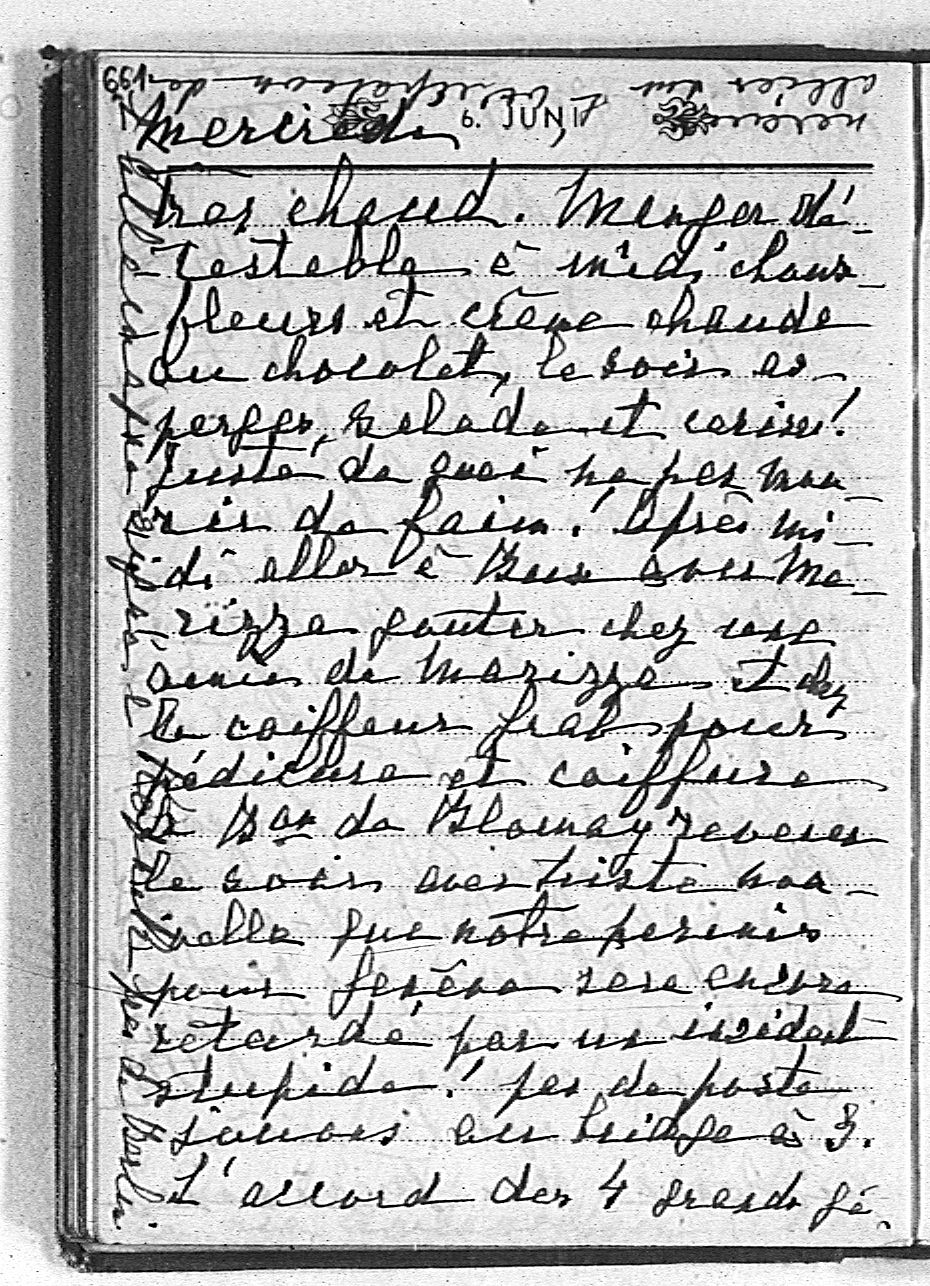 6. JUNI
Mercredi
Très chaud. Manger dé-
testable à midi choux-
fleurs et crême chaude
au chocolat, le soir as-
perges, salade et cerises!
Juste de quoi ne pas mou-
rir de faim! Après mi-
di aller à Baux avec Ma-
rizza gouter chez une
amie de Marizza et chez
le coiffeur Grab pour
pédicure et coiffure
Le Bon de Blonay revenu
le soir avec triste nou-
velle que notre permis
pour Genève sera encore
retardé par un incident
stupide! pas de poste
jouons au bridge à 3.
L'accord des 4 grands gé-